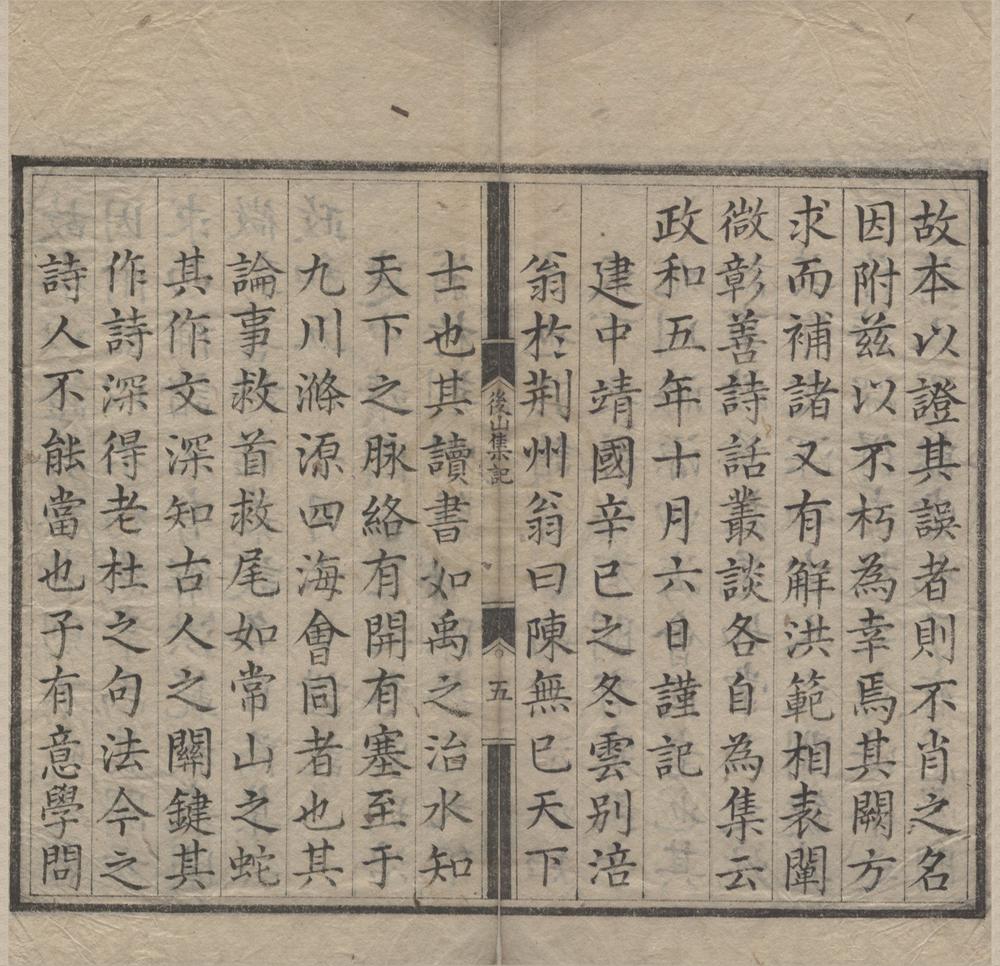 故本以證其誤者則不肖之名
因附茲以不朽為幸焉其闕方
求而補諸又有解洪範相表闡
微彰善詩話叢談各自為集云
政和五年十月六日謹記
建中靖國辛巳之冬雲別涪
翁於荆州翁曰陳無巳天下
後山集記
五
士也其讀書如禹之治水知
天下之脉絡有開有塞至于
九川滌源四海會同者也其
論事救首救尾如常山之蛇
其作文深知古人之關鍵其
作詩深得老杜之句法今之
詩人不能當也子有意學問